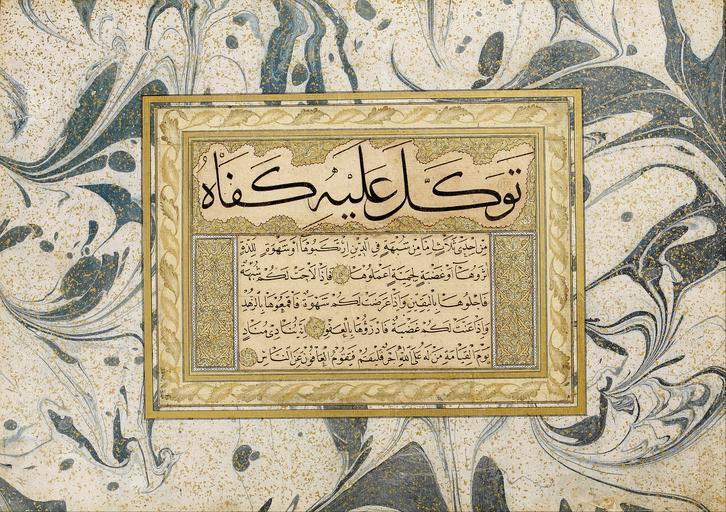 تَوَكَّلَ عَلَيْهِ كَفَاهُ
مِن اِحْدَى ثَلَاثٍ اِمَّا مِنْ شُبْهَةٍ فِى الدِّينِ ارْتَكَبُوهَا اَوْ شَهْوَةٍ لِلَذَّةٍ
اٰثَرُوهَا اَوْ غَضْبَةٍ لِحَمِيَّةٍ اَعْمَلُوهَا فَاِذَا لَاحَتْ لَكُمْ شُبْهَةٌ
فَاجْلُوهَا بِالْيَقِينِ وَاِذَا عَرَضَتْ لَكُمْ شَهْوَةٌ فَاقْمَعُوهَا بِالزُّهْدِ
وَاِذَا عَنَّتْ لَكُمْ غَضْبَةٌ فَادْرَؤُهَا بِالْعَفْوِ اِنَّهُ يُنَادِى مُنَادٍ
يَوْمَ الْقِيَامَةِ مَنْ لَهُ عَلَى اللهِ اَجْرٌ فَلْيَقُمْ فَيَقُومُ الْعَافُونَ عَنِ النَّاسِ